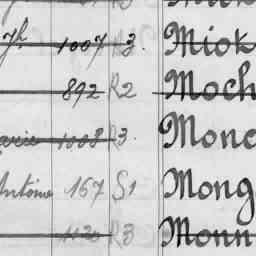 1007 3. Miok
892 R2 Moch
1008 R3 Monc
Antoine 167 S1 Mong
1120 R3 Monn